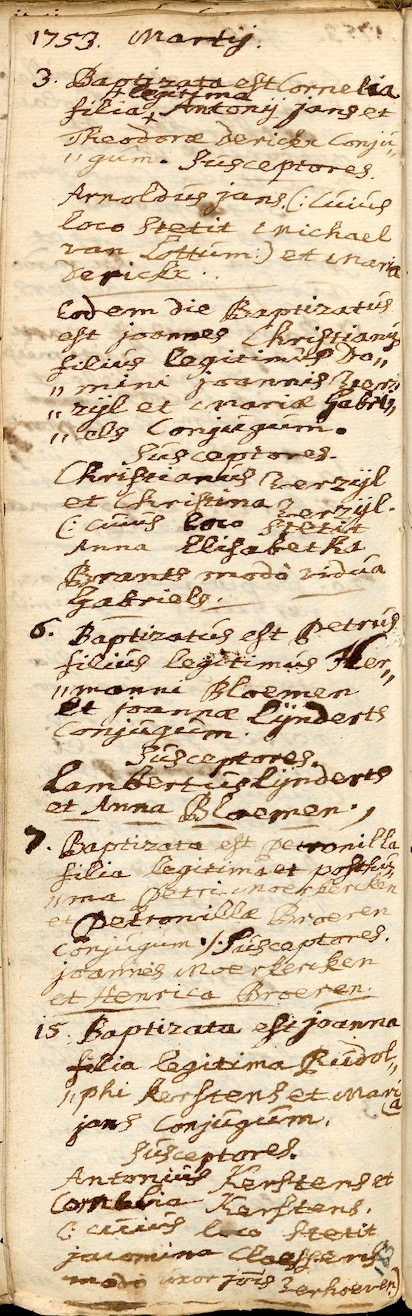 1753. Martij.
3. Baptizata est Cornelia
+ legitima
filia + Antonij Jans et
Theodoræ Dericks Conju„
„gum. Susceptores.
Arnoldus Jans. (: cuius
loco stetit Michael
van Lottum:) et Maria
Derickx.
Eodem die Baptizatus
est Joannes Christianus
filius legitimus Do„
„mini Joannis Verz„
„zijl et Mariæ Gabri„
„els Conjugum.
Susceptores.
Christianus Verzijl
et Christina Verzijl.
(: cuius loco stetit
Anna Elisabetha
Brants modo vidua
Gabriels.
6. Baptizatus est Petrus
filius legitimus Her„
„manni Bloemen
et Joannæ Lijnderts
Conjugum.
Susceptores.
Lambertus Lijnderts
et Anna Bloemen.
7. Baptizata est Petronilla
filia legitima et posthu„
„ma Petri Moerkercken
et Petronillæ Broeren
Conjugum /. Susceptores.
Joannes Moerkercken
et Henrica Broeren.
15. Baptizata est Joanna
filia legitima Rudol„
„phi Kerstens et Maria
Jans Conjugum.
Susceptores.
Antonius Kerstens et
Cornelia Kerstens.
(: cuius loco stetit
Jacomina Claessens
modo uxor Jois Verhoeven)